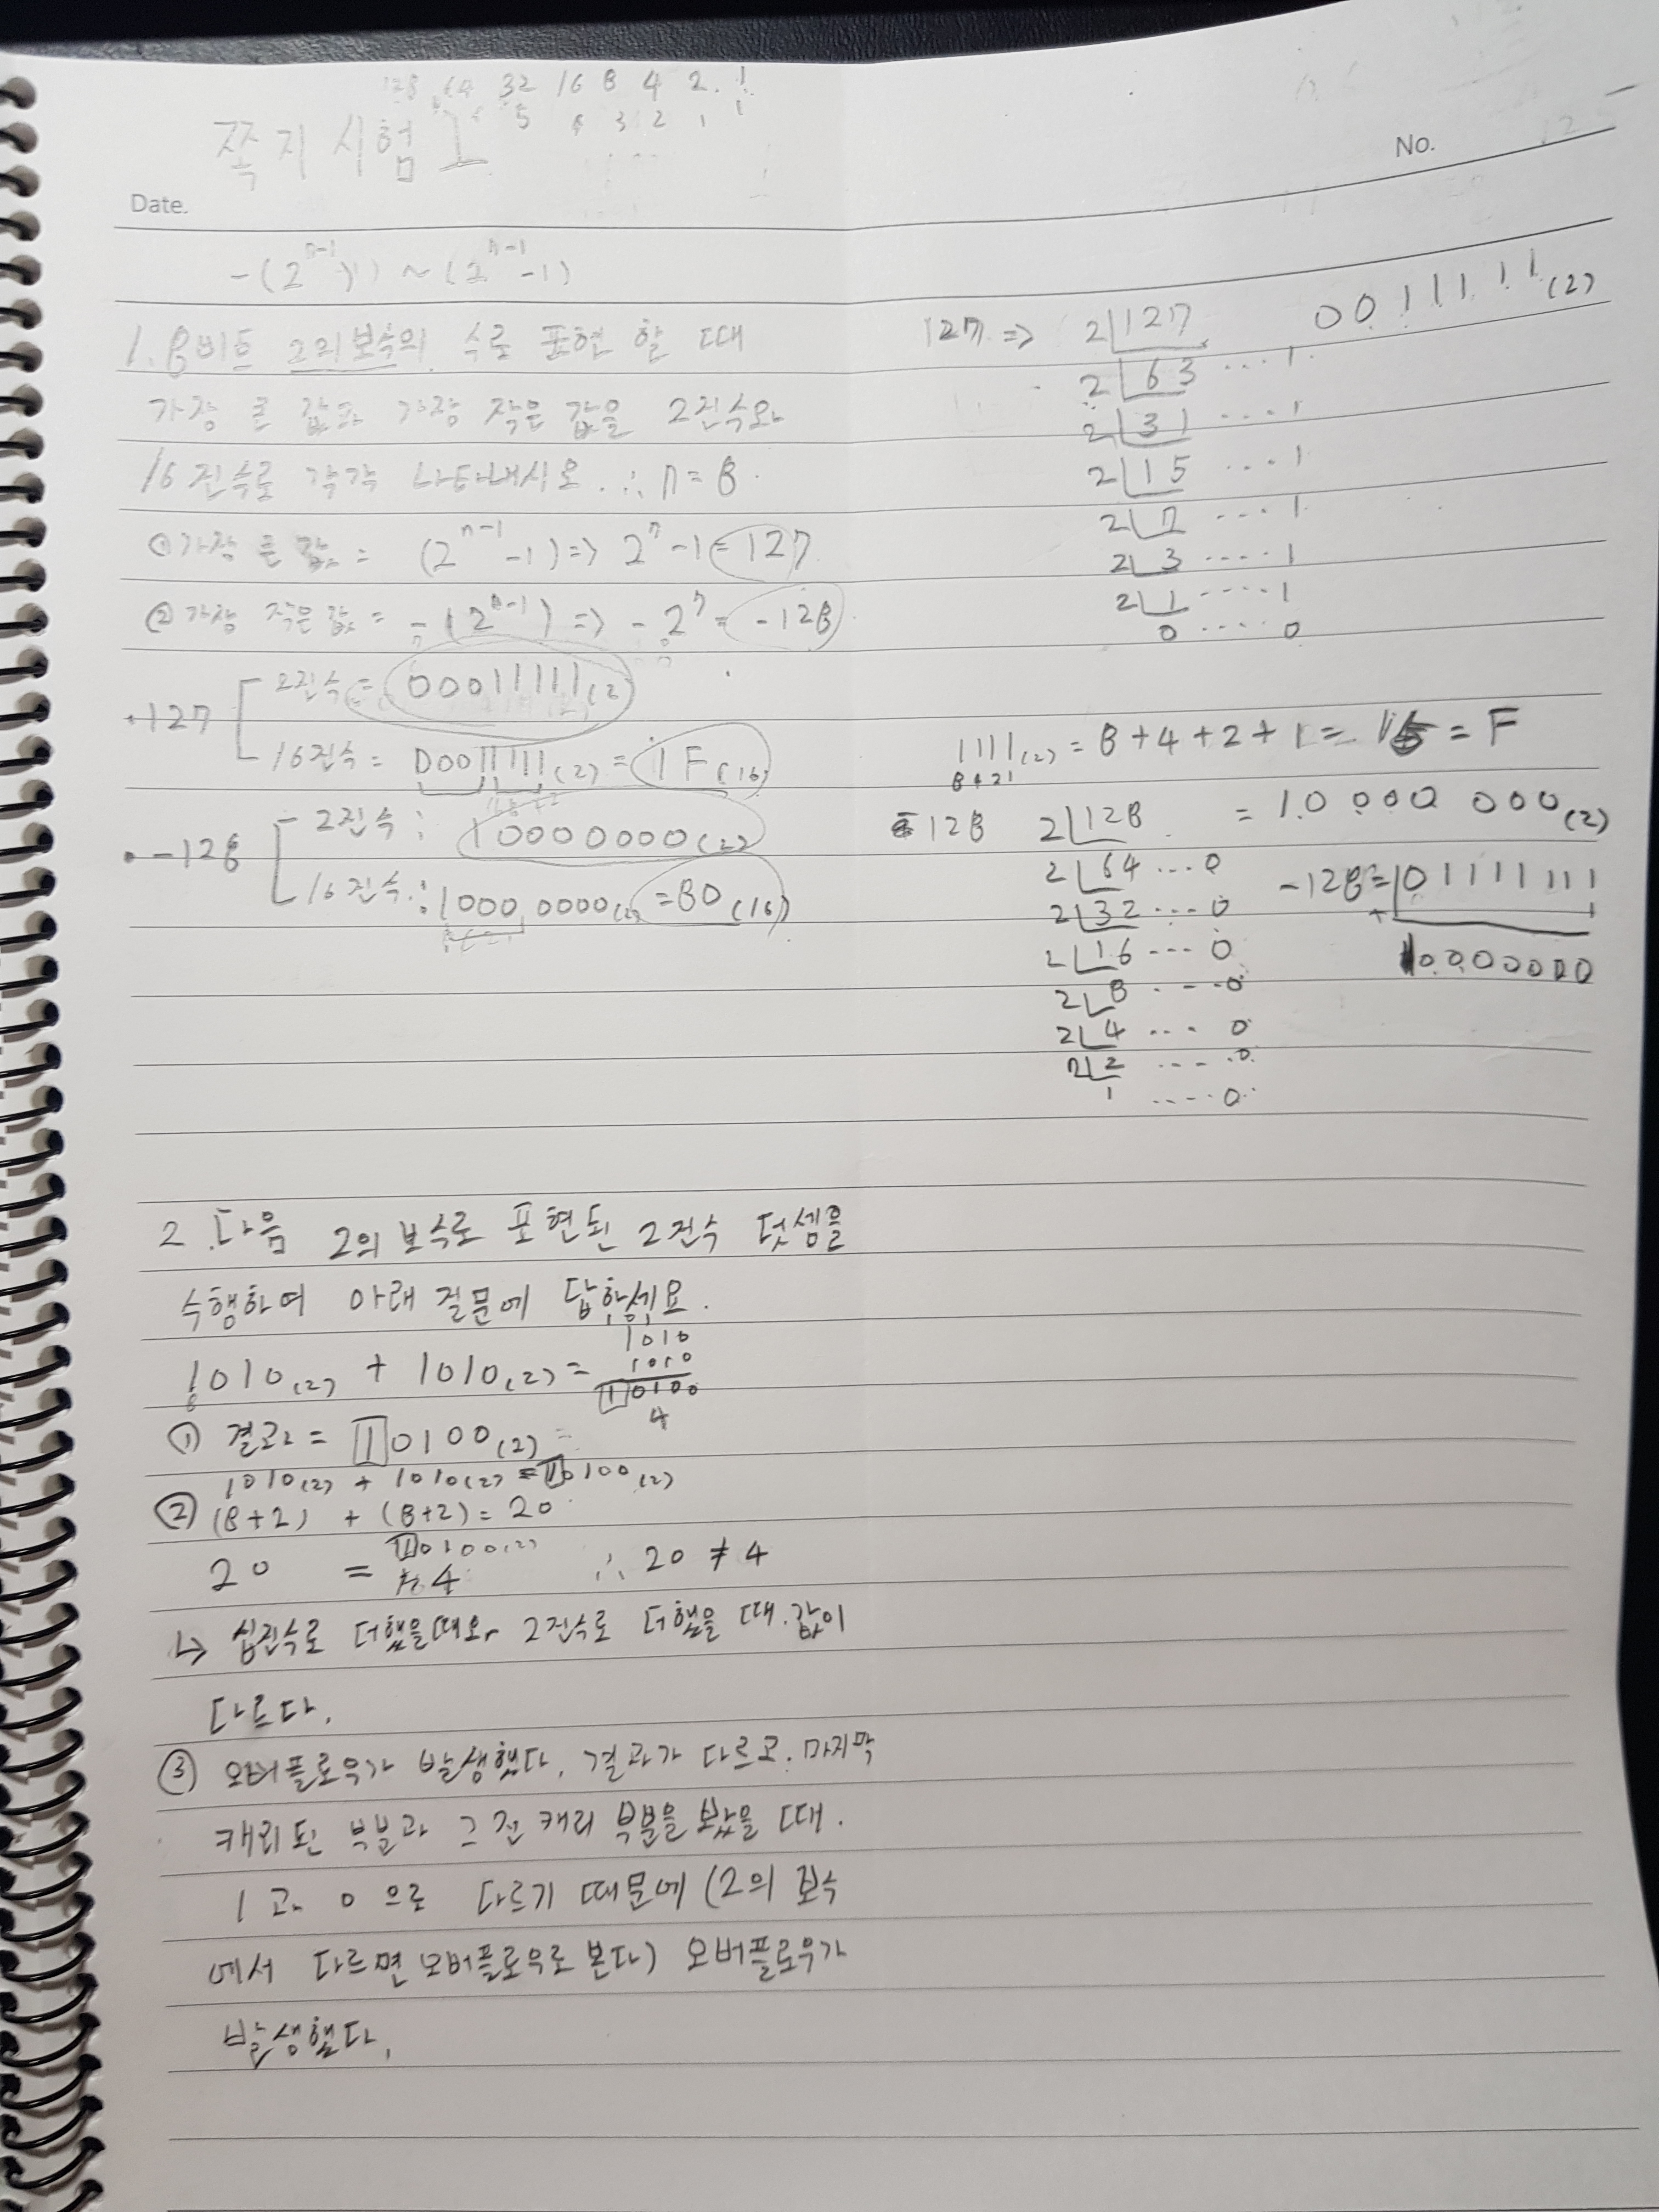 128 64 32 16 8 4 2 1
5 4 3 2 1
쪽지시험 1
No.
Date.
-(2^{n-1}) ~ (2^{n-1}-1)
1. 8비트 2의보수의 수로 표현 할 때
가장 큰 값과 가장 작은 값을 2진수와
16진수로 각각 나타내시오. ∴ n=8.
① 가장 큰 값 = (2^{n-1}-1) => 2^7-1 = 127
② 가장 작은 값 = -(2^{n-1}) => -2^7 = -128
·127
2진수 = 00011111(2)
16진수 = 00011111(2) = 1F(16)
· -128
2진수 : 10000000(2)
16진수 : 1000 0000(2) = 80(16)
127 => 2 127 00111111(2)
2 63 ···· 1
2 31 ···· 1
2 15 ···· 1
2 7 ···· 1
2 3 ···· 1
2 1 ···· 1
0 ···· 0
1111(2) = 8+4+2+1 = 15 = F
8421
128 2 128 = 10000000(2)
2 64 ··· 0
2 32 ··· 0
2 16 ··· 0
2 8 ··· 0
2 4 ···· 0
2 2 ···· 0
1 ···· 0
-128 = 01111111
+ 1
10000000
2. 다음 2의 보수로 표현된 2진수 덧셈을
수행하여 아래 질문에 답하세요.
1010(2) + 1010(2) =
1010
1010
10100
4
① 결과 = 10100(2) =
1010(2) + 1010(2) = 10100(2)
② (8+2) + (8+2) = 20
10100(2)
20 = 4 ∴ 20 ≠ 4
↳ 십진수로 더했을때와 2진수로 더했을 때 값이
다르다.
③ 오버플로우가 발생했다. 결과가 다르고. 마지막
캐리된 부분과 그 전 캐리 부분을 봤을 때.
1 과 0 으로 다르기 때문에 (2의 보수
에서 다르면 오버플로우로 본다) 오버플로우가
발생했다.